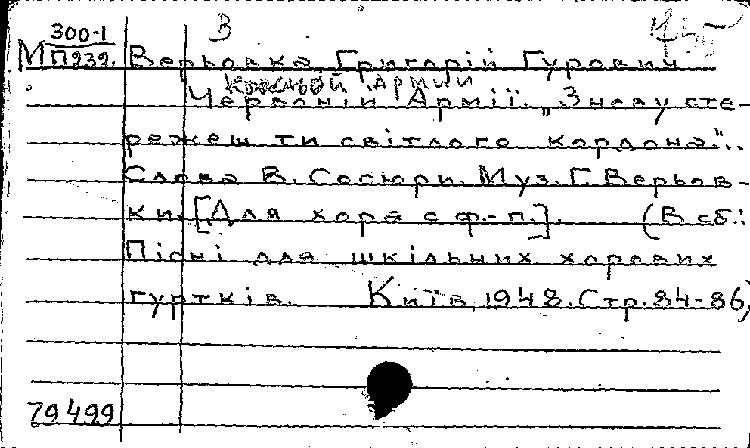 В
М 300-1
П232. Верьовка, Григорій Гурович
Красной Армии
Червоній Армії. „Знову сте-
режеш ти світлого кордона"..
Слова В. Сосюри. Муз. Г. Верьов-
ки. [Для хора с ф.-п.]. (В сб.:
Пісні для шкільних хорових
гуртків. Київ, 1948. Стр. 84-86)
79499